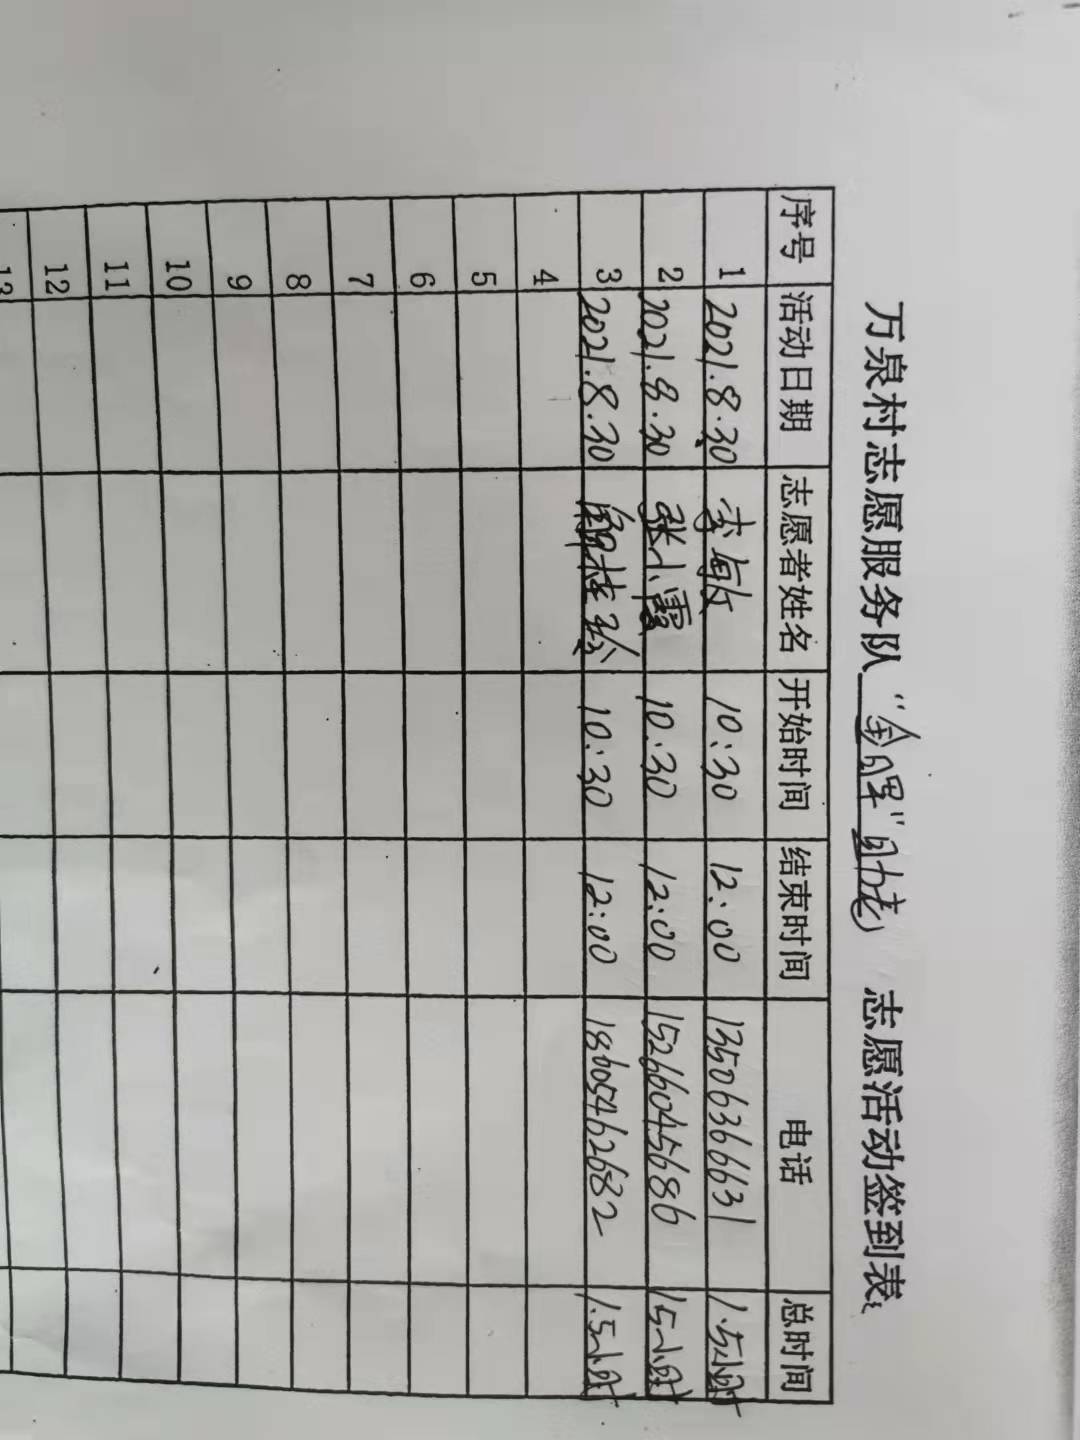 万泉村志愿服务队“金晖”助老 志愿活动签到表
序号 活动日期 志愿者姓名 开始时间 结束时间 电话 总时间
1 2021.8.30 李敏 10:30 12:00 13506366631 1.5小时
2 2021.8.30 张小霞 10:30 12:00 15266045686 1.5小时
3 2021.8.30 桂玲 10:30 12:00 18605462682 1.5小时
4
5
6
7
8
9
10
11
12
13